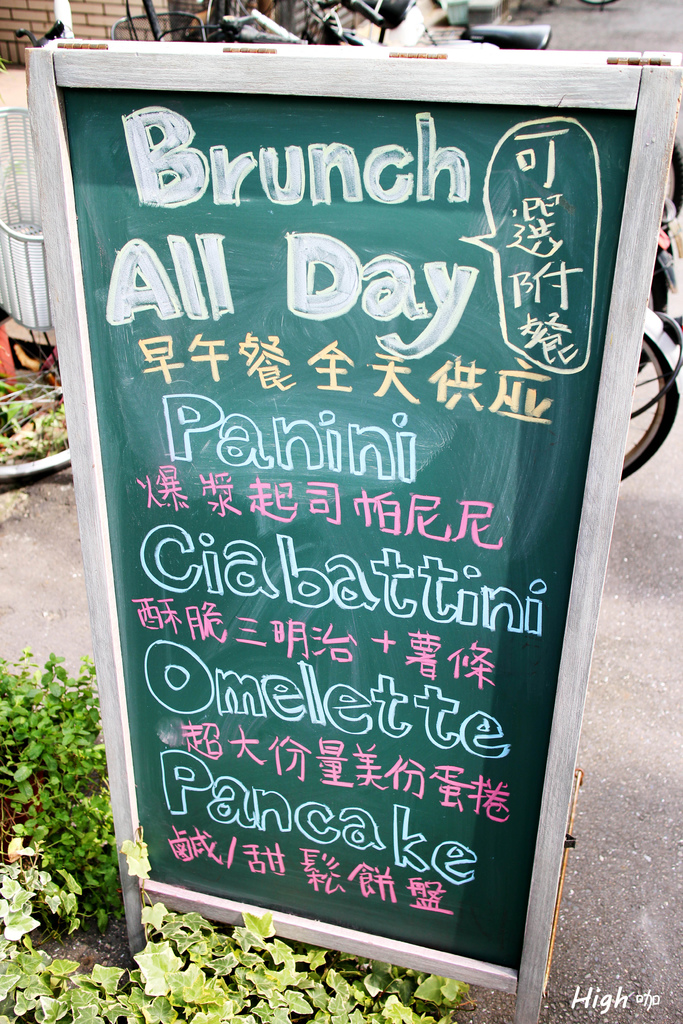 Brunch
All Day
可選附餐
早午餐全天供应
Panini
爆漿起司帕尼尼
Ciabattini
酥脆三明治+薯條
Omelette
超大份量美份蛋捲
Pancake
鹹/甜鬆餅盤
High 咖